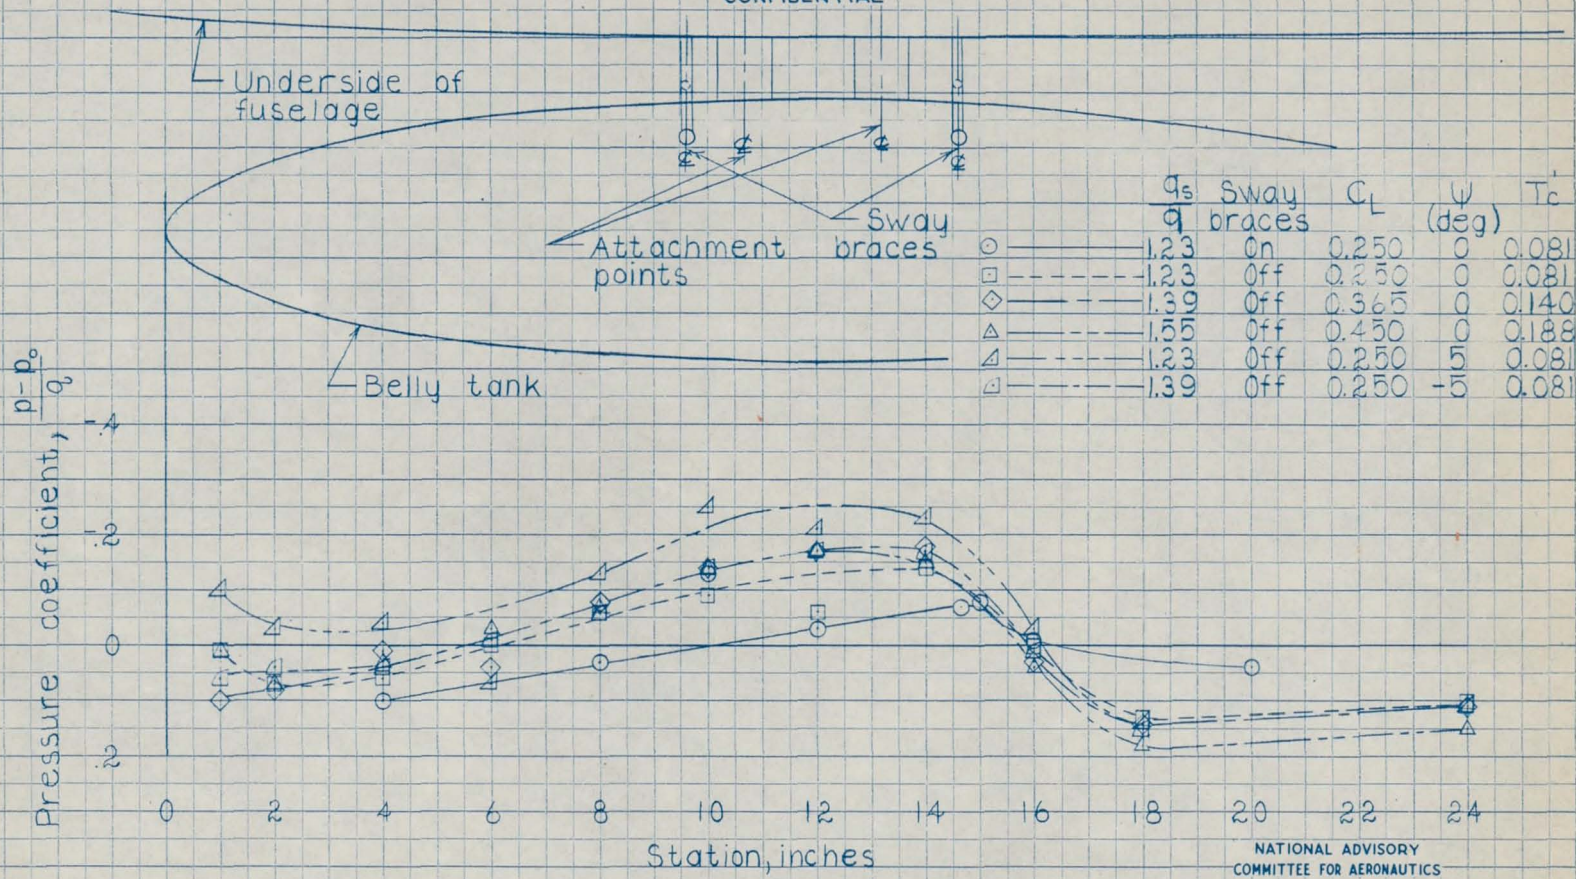 Underside of
fuselage
Sway
braces
Attachment
points
Belly tank
qs/q Sway braces CL ψ (deg) Tc'
1.23 On 0.250 0 0.081
1.23 Off 0.250 0 0.081
1.39 Off 0.365 0 0.140
1.55 Off 0.450 0 0.188
1.23 Off 0.250 5 0.081
1.39 Off 0.250 -5 0.081
Pressure coefficient, p-po/q
-.4
-.2
0
.2
0 2 4 6 8 10 12 14 16 18 20 22 24
Station, inches
NATIONAL ADVISORY
COMMITTEE FOR AERONAUTICS